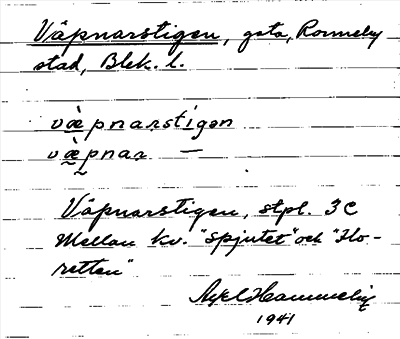 Väpnarstigen, gata, Ronneby
stad, Blek. l.
væ̀pnarstigən
væ̀pnaʀ —
Väpnarstigen, stpl. 3C
Mellan kv. "Spjutet" och "Flo-
retten"
Axel Hammelin
1941